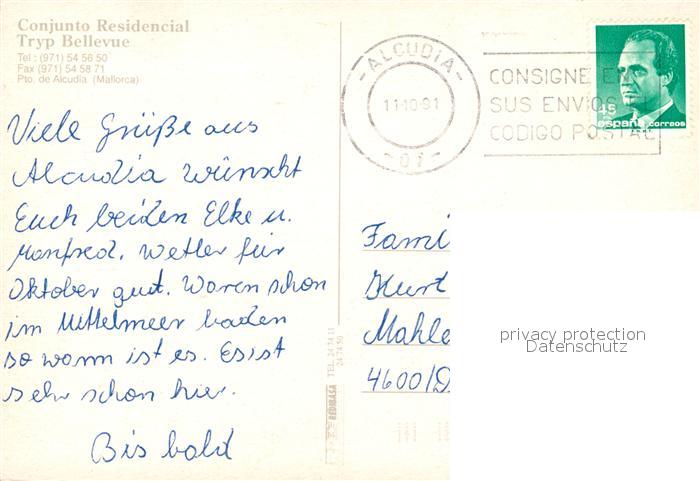 Conjunto Residencial
Tryp Bellevue
Tel : (971) 54 56 50
Fax (971) 54 58 71
Pto. de Alcudia (Mallorca)
Viele Grüße aus
Alcudia wünscht
Euch beiden Elke u.
Manfred. Wetter für
Oktober gut. Waren schon
im Mittelmeer baden
so warm ist es. Es ist
sehr schön hier.
Bis bald
REDIBASA
TEL. 24 74 11
24 74 50
ALCUDIA
11•10•91
01
CONSIGNE EN
SUS ENVIOS
CODIGO POSTAL
45
españa correos
Fami
Kurt
Mahle
4600/D
privacy protection
Datenschutz